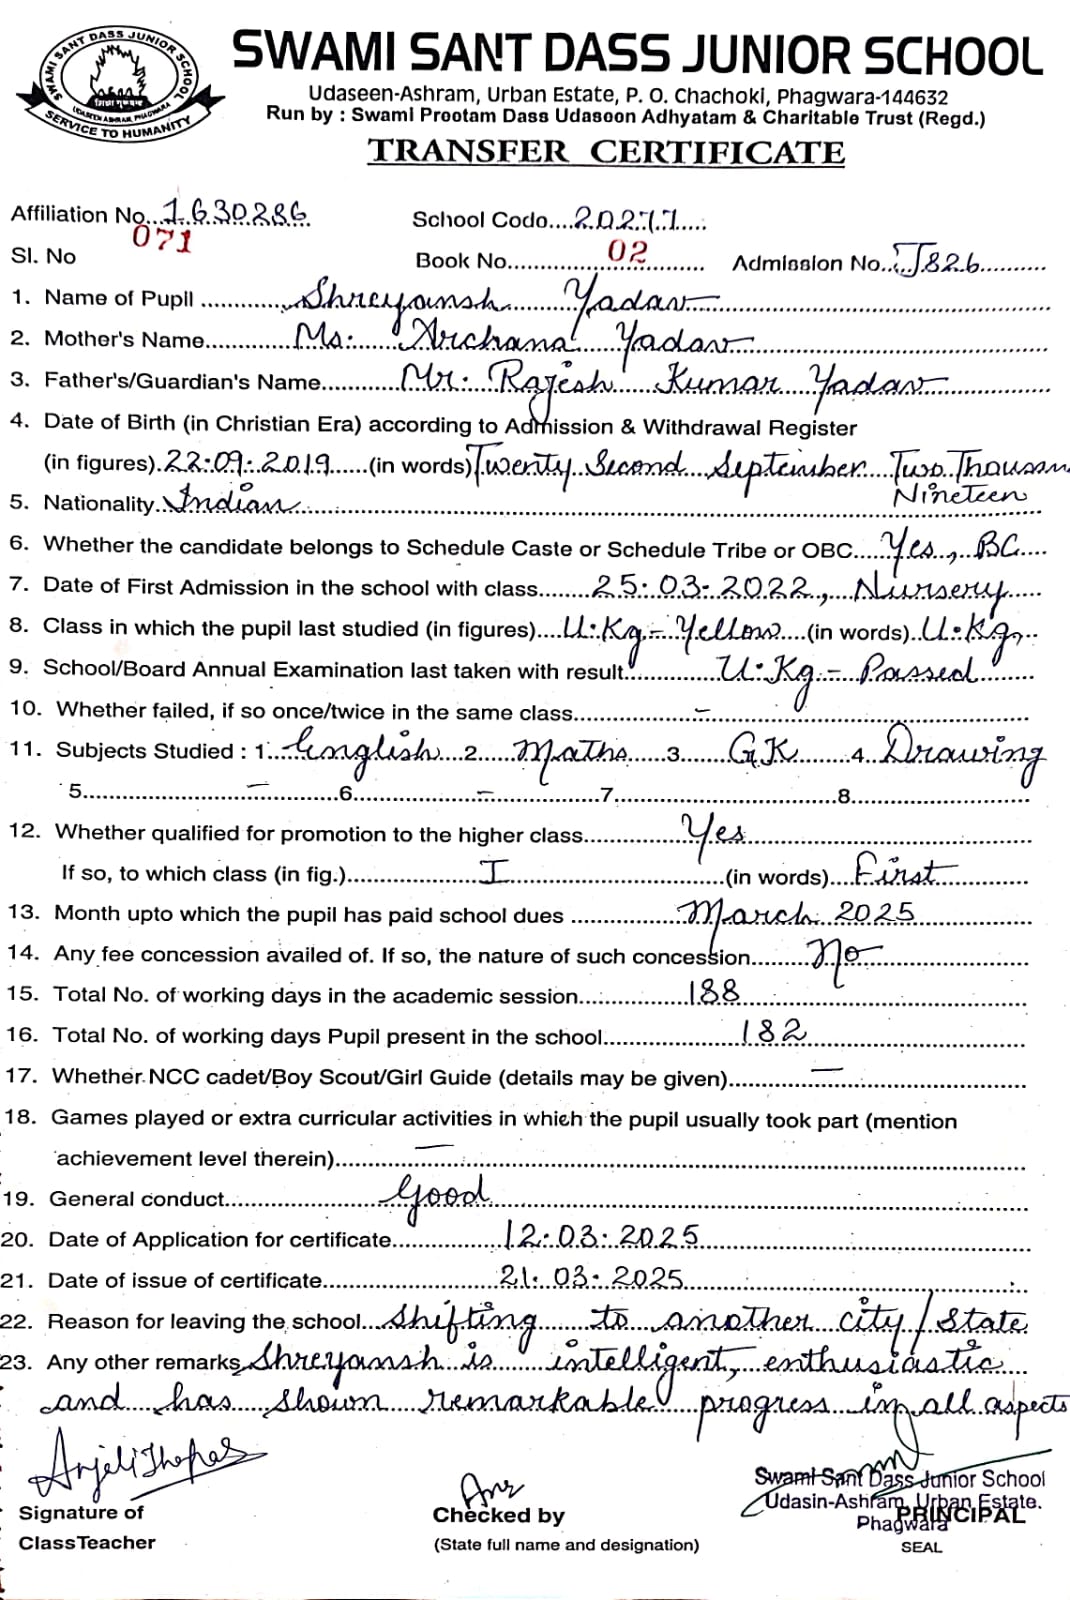 SWAMI SANT DASS JUNIOR SCHOOL
SWAMI SANT DASS JUNIOR SCHOOL
UDASEEN ASHRAM, PHAGWARA
SERVICE TO HUMANITY
Udaseen-Ashram, Urban Estate, P. O. Chachoki, Phagwara-144632
Run by : Swami Prootam Dass Udasoon Adhyatam & Charitable Trust (Regd.)
TRANSFER CERTIFICATE
Affiliation No. 1630286 School Codo 20277
Sl. No 071 Book No. 02 Admission No. J826
1. Name of Pupil Shreyansh Yadav
2. Mother's Name Ms. Archana Yadav
3. Father's/Guardian's Name Mr. Rajesh Kumar Yadav
4. Date of Birth (in Christian Era) according to Admission & Withdrawal Register
(in figures) 22-09-2019 (in words) Twenty Second September Two Thousan
Nineteen
5. Nationality Indian
6. Whether the candidate belongs to Schedule Caste or Schedule Tribe or OBC Yes, BC
7. Date of First Admission in the school with class 25-03-2022, Nursery
8. Class in which the pupil last studied (in figures) U.Kg - Yellow (in words) U.Kg
9. School/Board Annual Examination last taken with result U.Kg - Passed
10. Whether failed, if so once/twice in the same class –
11. Subjects Studied : 1. English 2. Maths 3. GK 4. Drawing
5. – 6. – 7. 8.
12. Whether qualified for promotion to the higher class Yes
If so, to which class (in fig.) I (in words) First
13. Month upto which the pupil has paid school dues March 2025
14. Any fee concession availed of. If so, the nature of such concession No
15. Total No. of working days in the academic session 188
16. Total No. of working days Pupil present in the school 182
17. Whether NCC cadet/Boy Scout/Girl Guide (details may be given) –
18. Games played or extra curricular activities in which the pupil usually took part (mention
achievement level therein) –
19. General conduct Good
20. Date of Application for certificate 12-03-2025
21. Date of issue of certificate 21-03-2025
22. Reason for leaving the school Shifting to another city/State
23. Any other remarks Shreyansh is intelligent, enthusiastic
and has shown remarkable progress in all aspects
Signature of
ClassTeacher
Checked by
(State full name and designation)
Swami Sant Dass Junior School
Udasin-Ashram, Urban Estate.
Phagwara
PRINCIPAL
SEAL